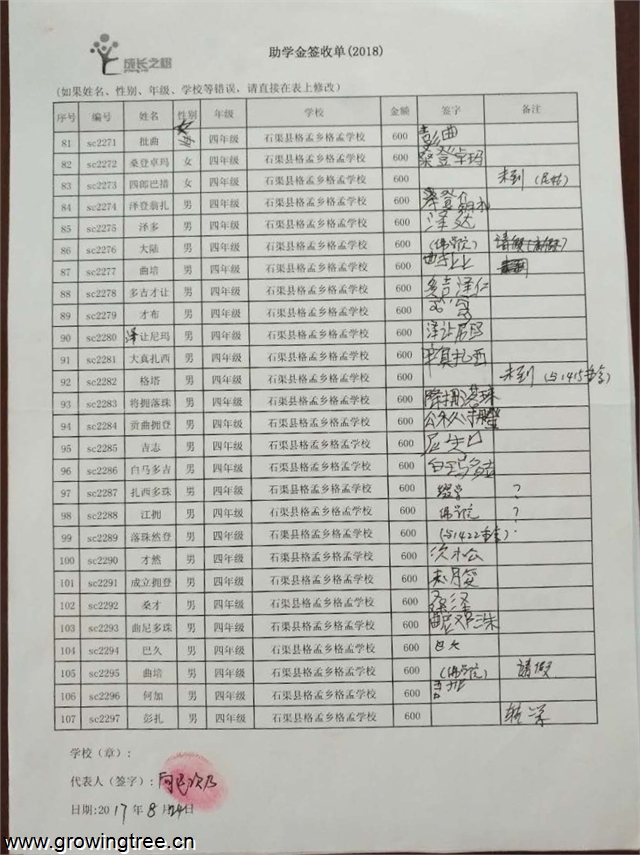 成长之树
助学金签收单(2018)
(如果姓名、性别、年级、学校等错误，请直接在表上修改)
序号 编号 姓名 性别 年级 学校 金额 签字 备注
81 sc2271 批曲 女 四年级 石渠县格孟乡格孟学校 600 彭曲
82 sc2272 桑登卓玛 女 四年级 石渠县格孟乡格孟学校 600 桑登卓玛
83 sc2273 四郎巴措 女 四年级 石渠县格孟乡格孟学校 600 未到
84 sc2274 泽登翁扎 男 四年级 石渠县格孟乡格孟学校 600
85 sc2275 泽多 男 四年级 石渠县格孟乡格孟学校 600 泽达
86 sc2276 大陆 男 四年级 石渠县格孟乡格孟学校 600 (佛学院) 請假
87 sc2277 曲培 男 四年级 石渠县格孟乡格孟学校 600
88 sc2278 多吉才让 男 四年级 石渠县格孟乡格孟学校 600 多吉泽仁
89 sc2279 才布 男 四年级 石渠县格孟乡格孟学校 600
90 sc2280 泽让尼玛 男 四年级 石渠县格孟乡格孟学校 600 泽让尼玛
91 sc2281 大真扎西 男 四年级 石渠县格孟乡格孟学校 600 真扎西
92 sc2282 格塔 男 四年级 石渠县格孟乡格孟学校 600 未到 (与1415重名)
93 sc2283 将拥落珠 男 四年级 石渠县格孟乡格孟学校 600
94 sc2284 贡曲拥登 男 四年级 石渠县格孟乡格孟学校 600
95 sc2285 吉志 男 四年级 石渠县格孟乡格孟学校 600
96 sc2286 白马多吉 男 四年级 石渠县格孟乡格孟学校 600 白马多吉
97 sc2287 扎西多珠 男 四年级 石渠县格孟乡格孟学校 600 ?
98 sc2288 江拥 男 四年级 石渠县格孟乡格孟学校 600 佛学院 ?
99 sc2289 落珠然登 男 四年级 石渠县格孟乡格孟学校 600 (与1422重名)
100 sc2290 才然 男 四年级 石渠县格孟乡格孟学校 600
101 sc2291 成立拥登 男 四年级 石渠县格孟乡格孟学校 600
102 sc2292 桑才 男 四年级 石渠县格孟乡格孟学校 600 桑泽
103 sc2293 曲尼多珠 男 四年级 石渠县格孟乡格孟学校 600
104 sc2294 巴久 男 四年级 石渠县格孟乡格孟学校 600
105 sc2295 曲培 男 四年级 石渠县格孟乡格孟学校 600 (佛学院) 請假
106 sc2296 何加 男 四年级 石渠县格孟乡格孟学校 600
107 sc2297 彭扎 男 四年级 石渠县格孟乡格孟学校 600
学校（章）：
代表人（签字）：
日期:2017年8月24日
www.growingtree.cn